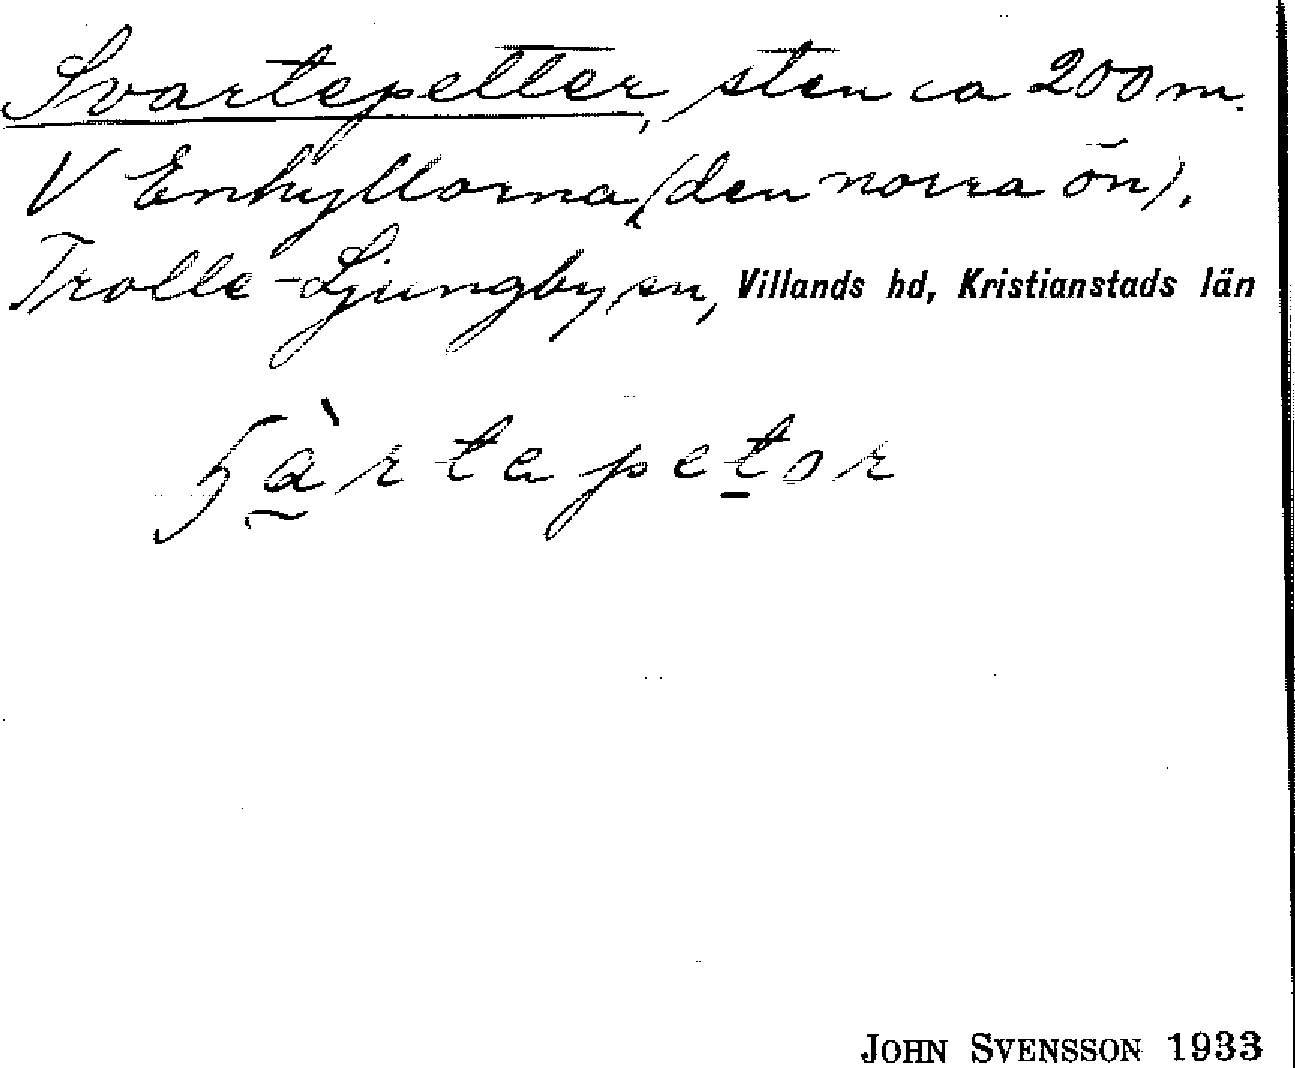 Svartepetter, sten ca 200 m.
V Enhyllorna, (den norra ön),
Trolle-Ljungby sn, Villands hd, Kristianstads län
JOHN SVENSSON 1933